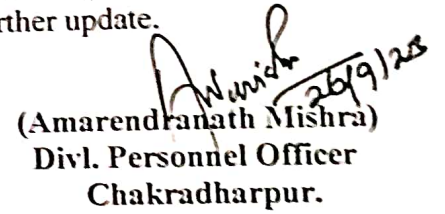 rther update.
26/9/23
(Amarendranath Mishra)
Divl. Personnel Officer
Chakradharpur.